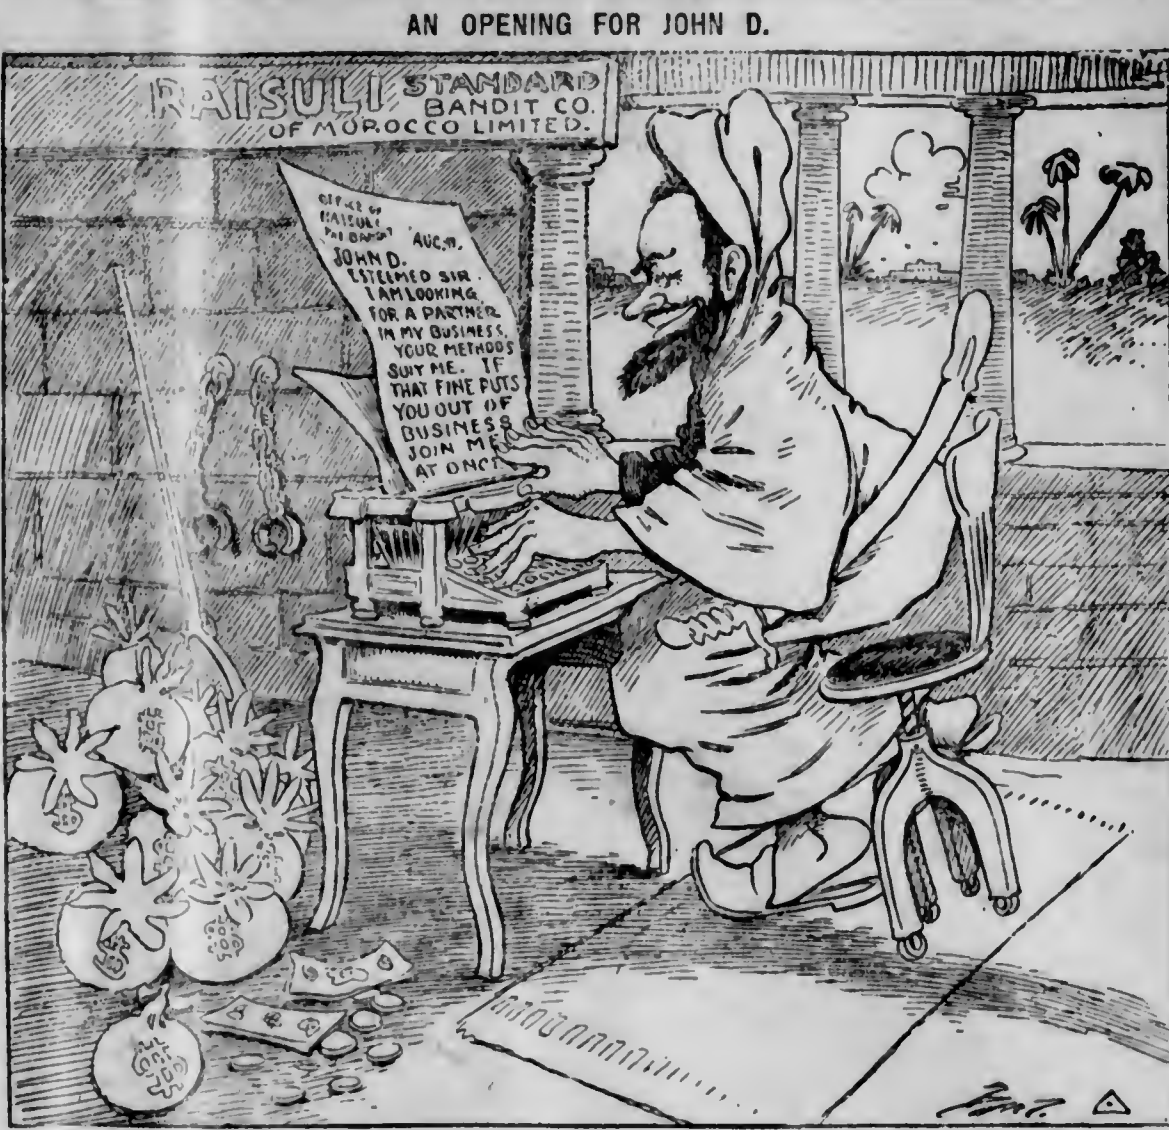 AN OPENING FOR JOHN D.
RAISULI STANDARD
BANDIT CO.
OF MOROCCO LIMITED.
OFFICE OF
RAISULI
THE BANDIT
AUG.
JOHN D.
ESTEEMED SIR.
I AM LOOKING
FOR A PARTNER
IN MY BUSINESS,
YOUR METHODS
SUIT ME. IF
THAT FINE PUTS
YOU OUT OF
BUSINESS
JOIN ME
AT ONCE